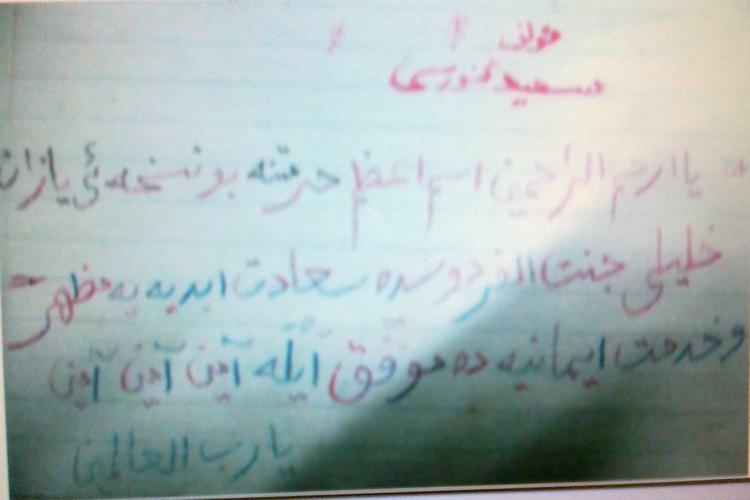 مؤلفی
سعید نورسی
یا ارحم الراحمین اسم اعظم حرمتنه بو نسخه ئی یازان
خلیلی جنت الفردوسده سعادت ابدیه یه مظهر
و خدمت ایمانیه ده موفق ایله آمین آمین آمین
یا رب العالمین